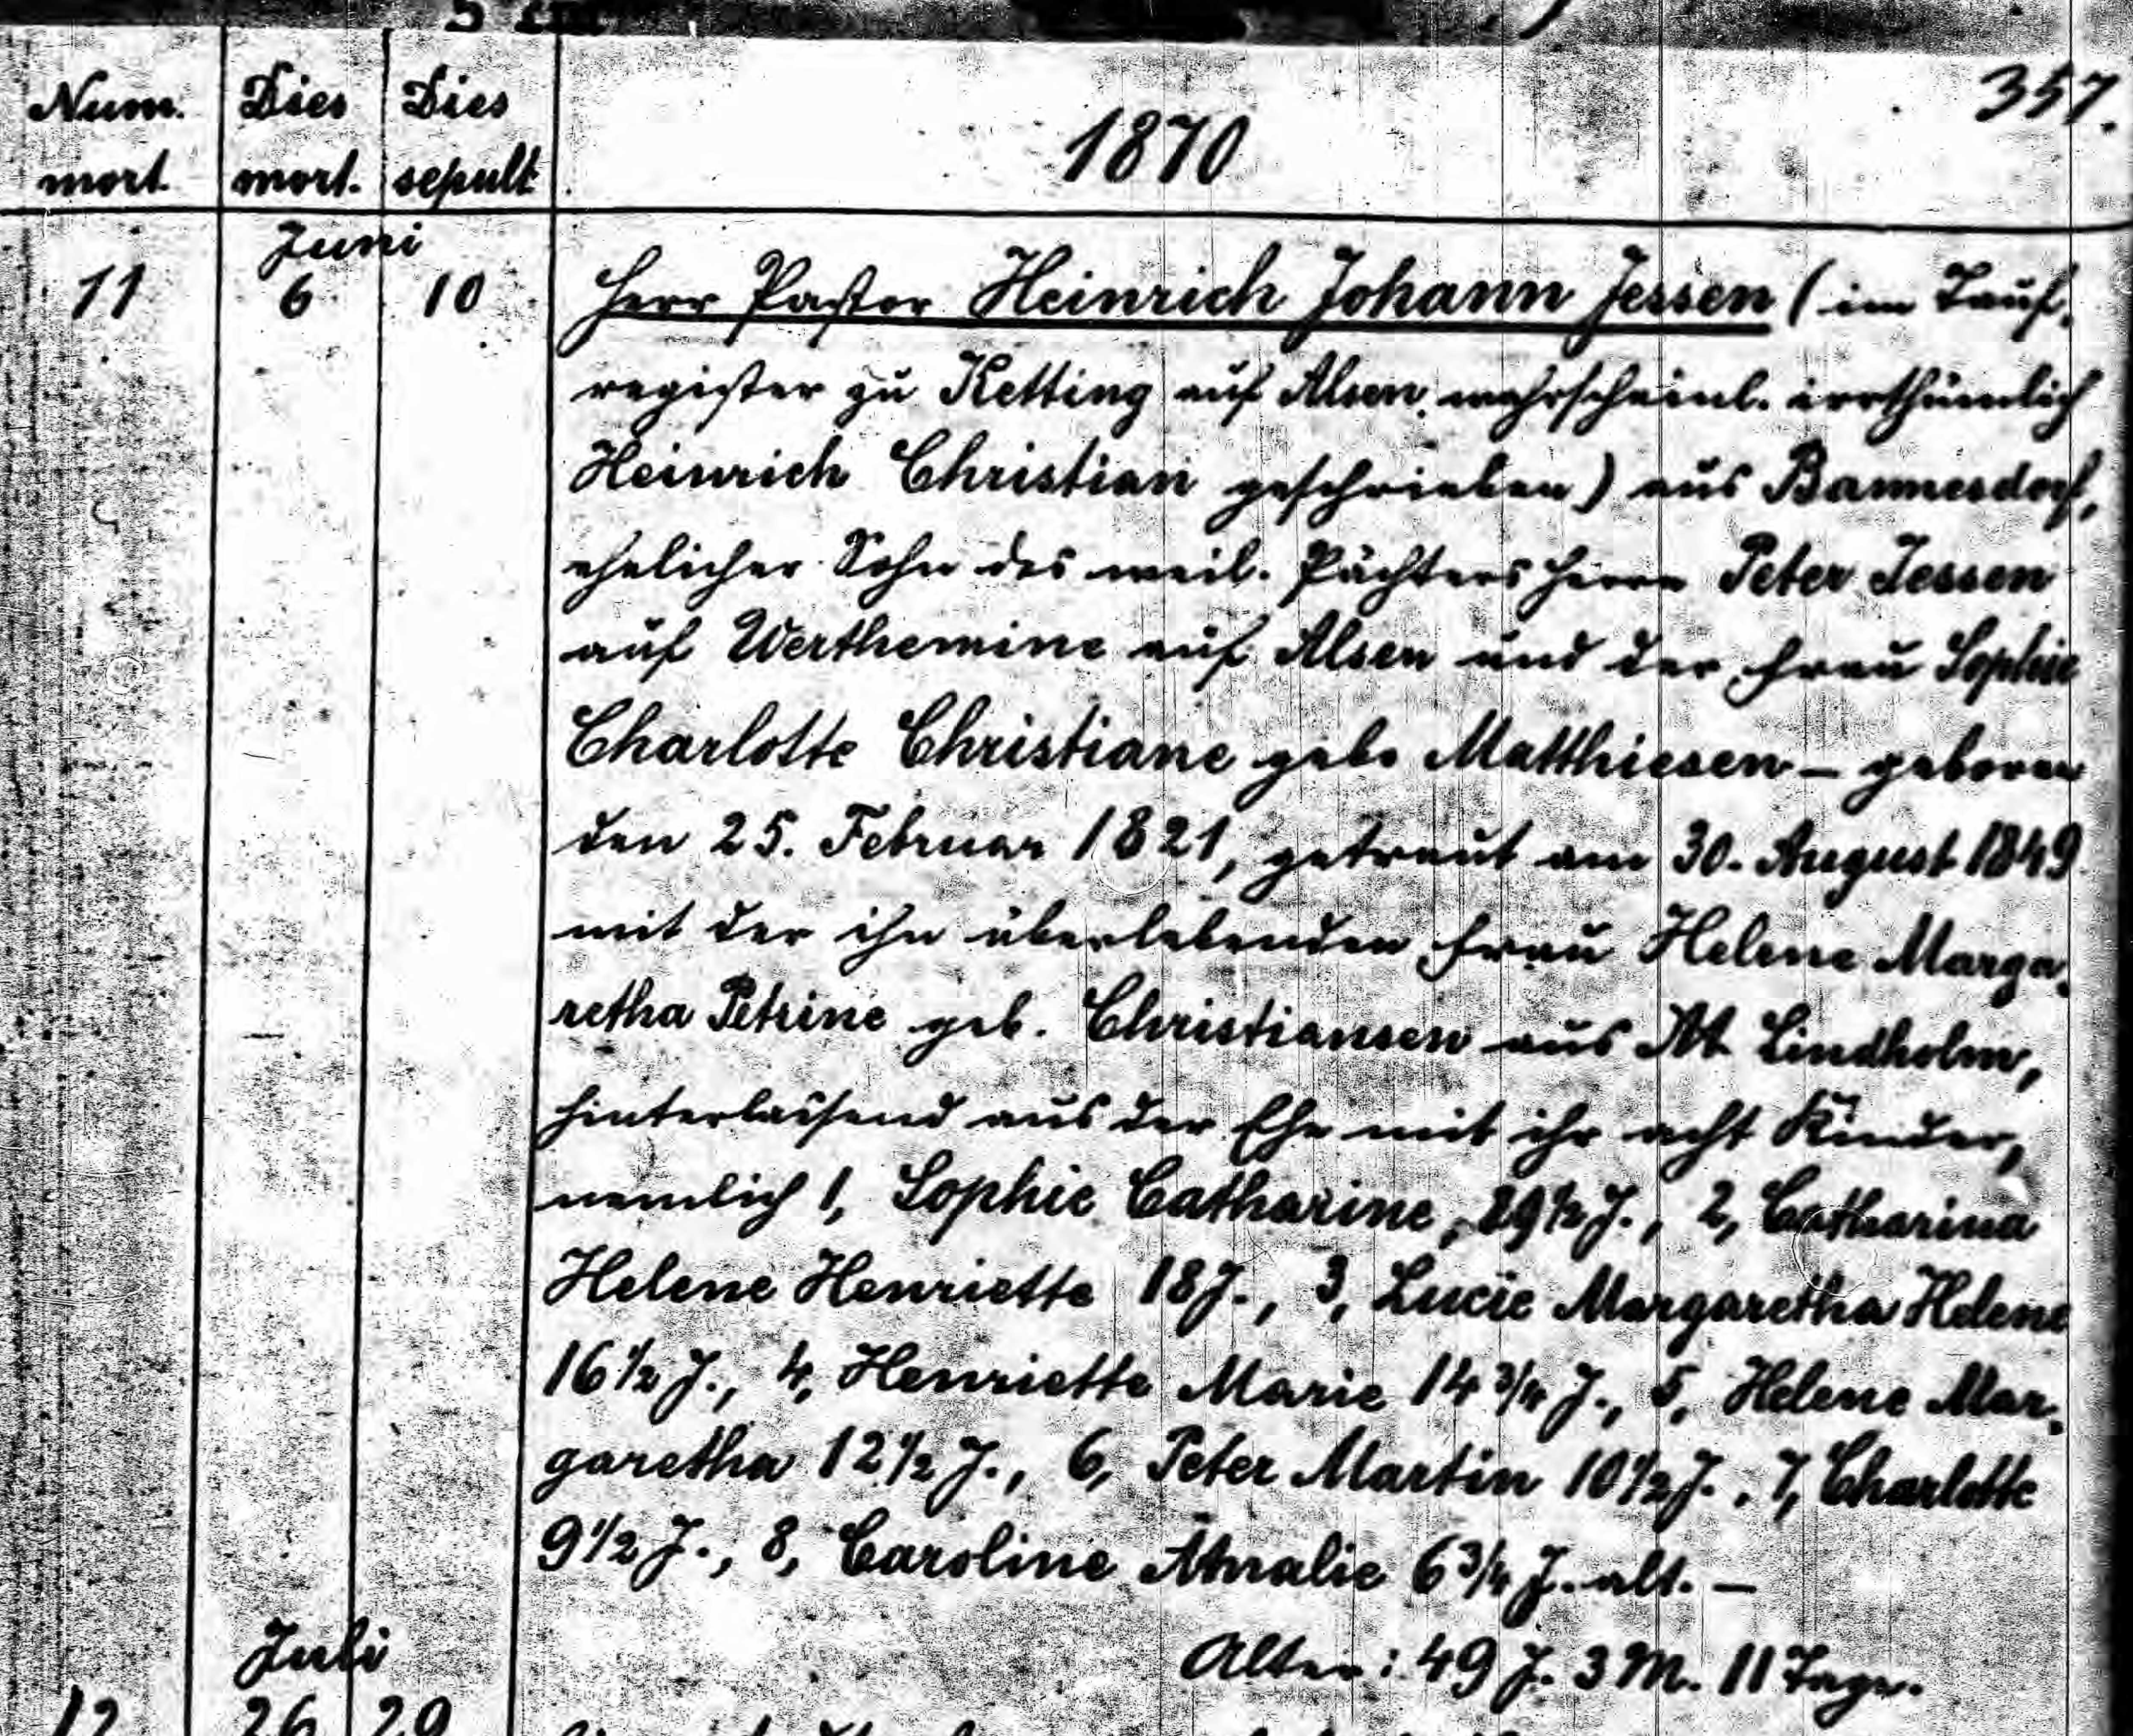 357.
Num. mort. Dies mort. Dies sepult
1870
Juni
11 6 10 Herr Pastor Heinrich Johann Jessen (im Tauf-
register zu Ketting auf Alsen wahrscheinl. irrthümlich
Heinrich Christian geschrieben) aus Bannesdorf,
ehelicher Sohn des weil. Pächters Herrn Peter Jessen
auf Werthemine auf Alsen und der Frau Sophie
Charlotte Christiane geb. Matthiesen – geboren
den 25. Februar 1821, getraut am 30. August 1849
mit der ihn überlebenden Frau Helene Marga-
retha Petrine geb. Christiansen aus Lindholm,
hinterlassend aus der Ehe mit ihr acht Kinder,
nemlich 1, Sophie Catharine, 19½ J., 2, Catharina
Helene Henriette 18 J., 3, Lucie Margaretha Helene
16½ J., 4, Henriette Marie 14¾ J., 5, Helene Mar-
garetha 12½ J., 6, Peter Martin 10½ J., 7, Charlotte
9½ J., 8, Caroline Amalie 6¾ J. alt. –
Alter: 49 J. 3 M. 11 Tage.
Juli
12 26 29